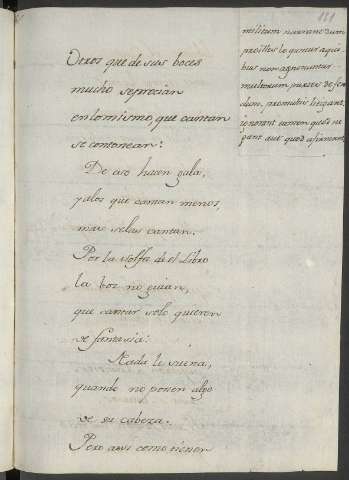 181
Otros que de sus boces
mucho se precian
en lo mismo, que cantan
se contonean:
De eso hacen gala,
y alos que cantan menos,
mas selas cantan.
Por la solfa de el Libro
la voz no guian,
que cantar solo quieren
de fantasia:
Nada le suena,
quando no ponen algo
de su cabeza.
Pero asi como tienen
militum narrandum
pro illis loquntur aqui
bus non
multorum
tamen quod ne
gant aut quod afirment